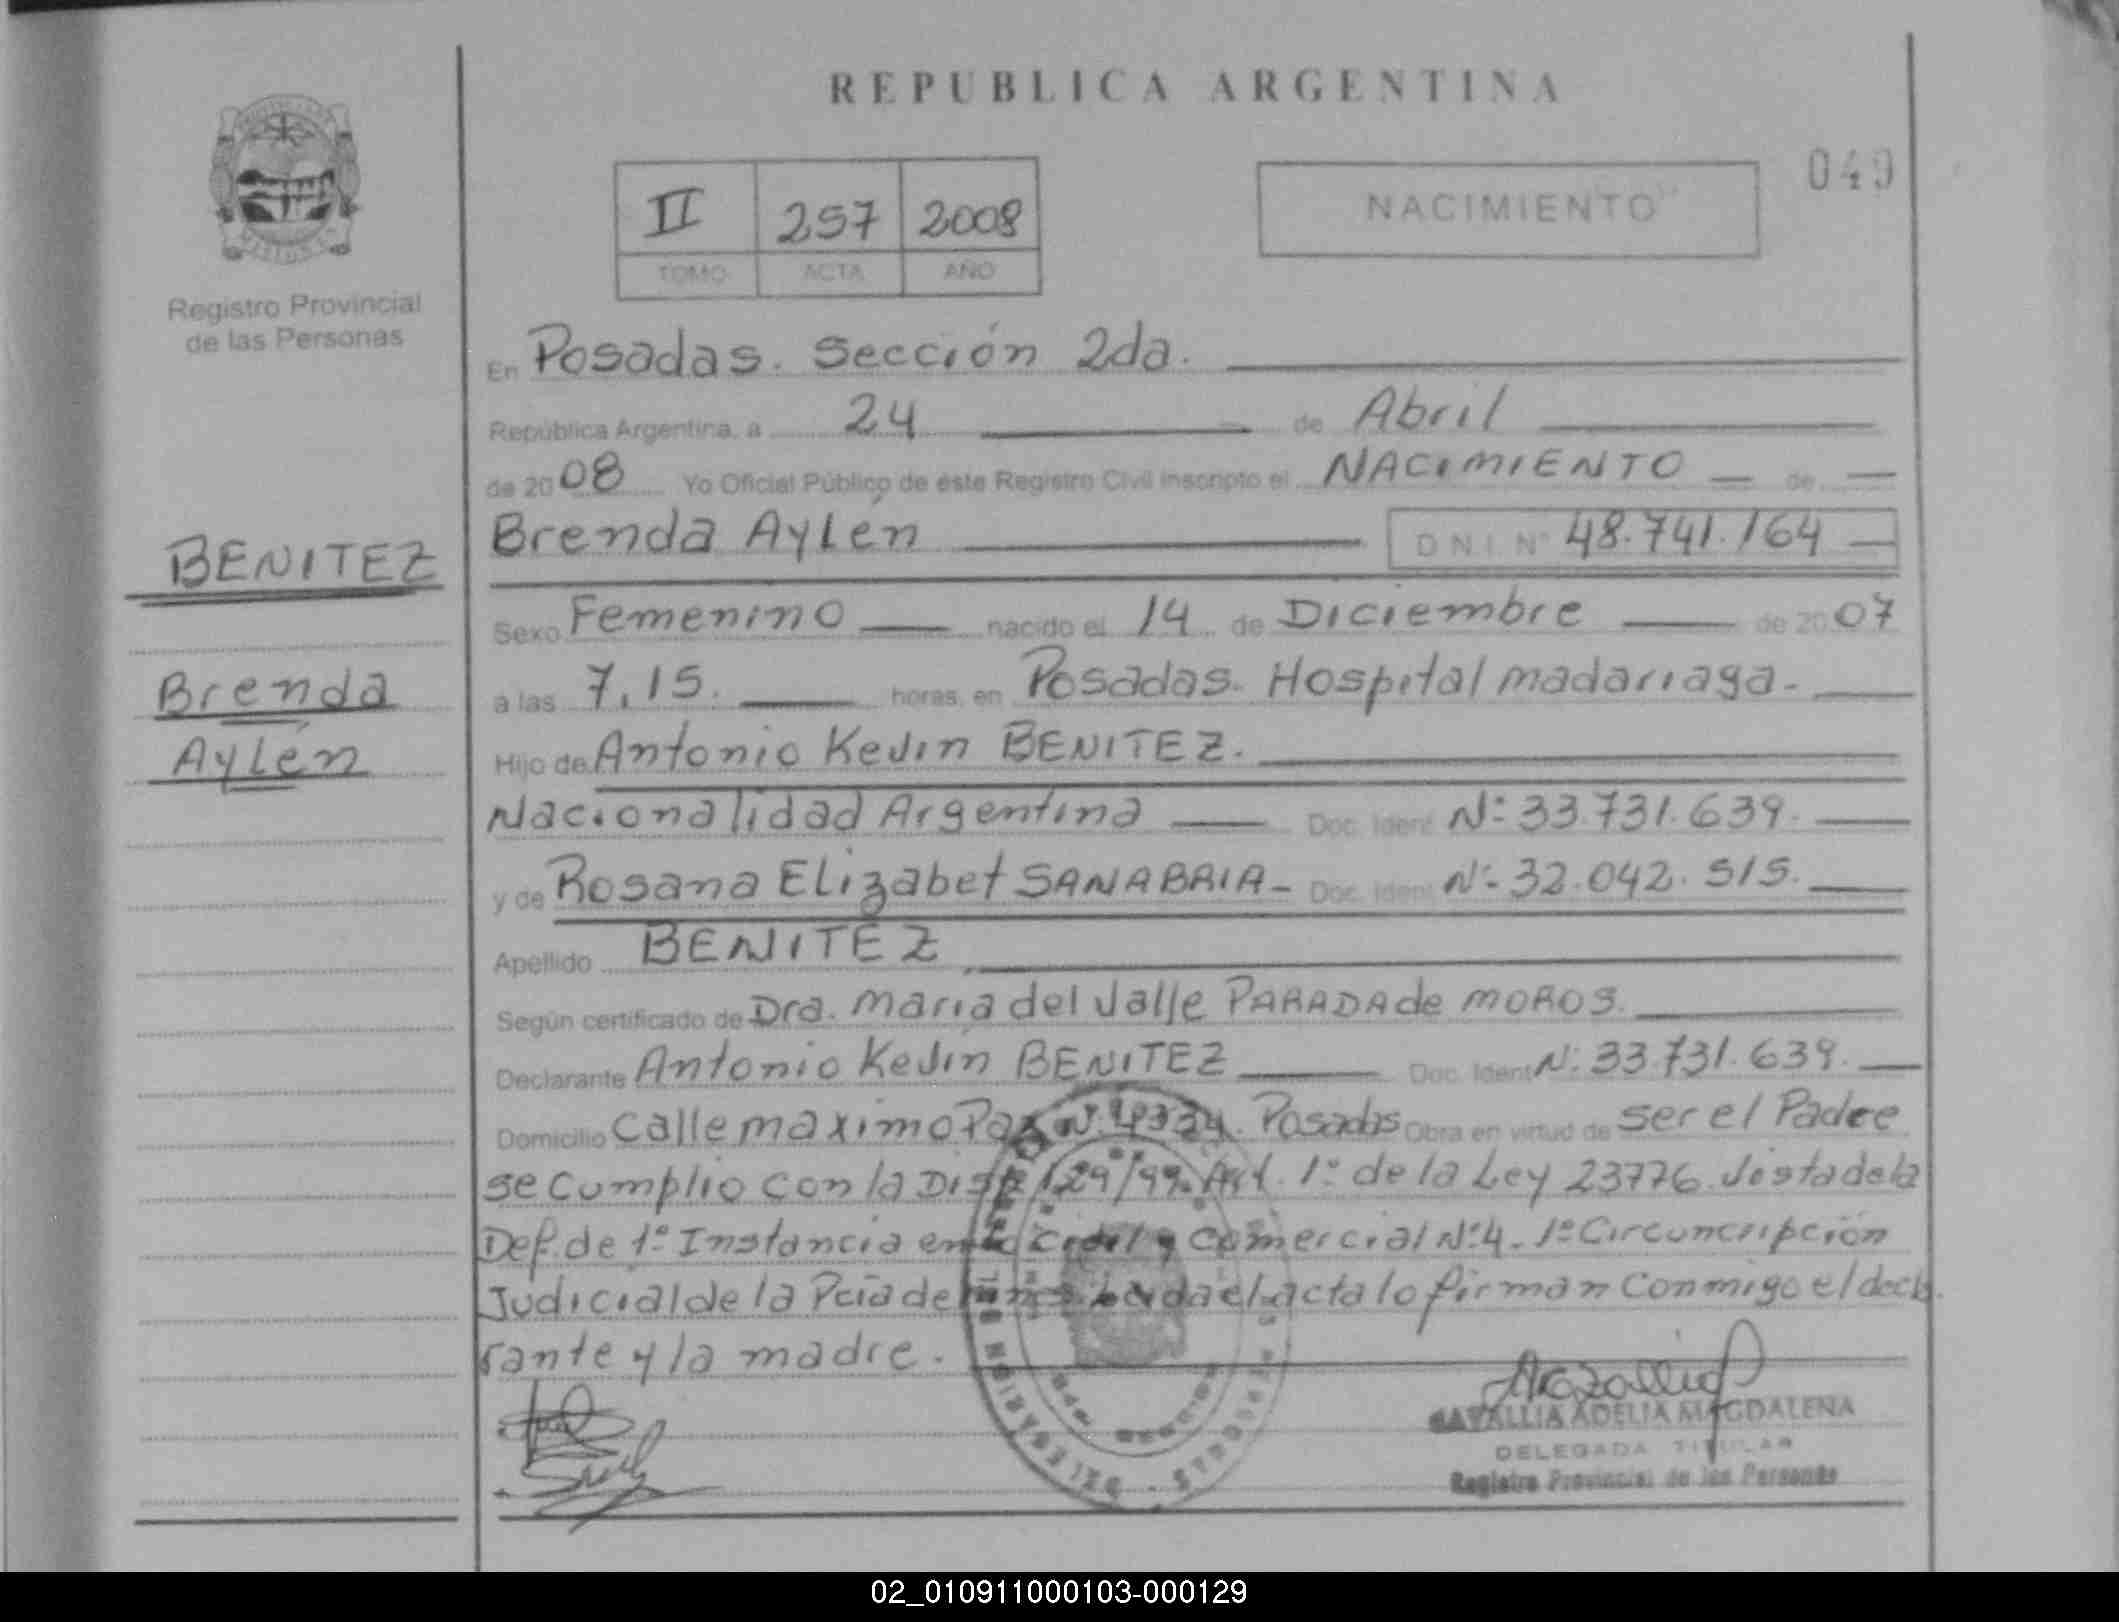 REPUBLICA ARGENTINA
049
II 257 2008
TOMO ACTA AÑO
NACIMIENTO
Registro Provincial
de las Personas
BENITEZ
Brenda
Aylén
En Posadas. Sección 2da.
República Argentina, a 24 de Abril
de 2008 Yo Oficial Público de éste Registro Civil inscripto el NACIMIENTO de
Brenda Aylén D.N.I. N° 48.741.164
Sexo Femenino nacido el 14 de Diciembre de 2007
a las 7,15. horas, en Posadas. Hospital Madariaga.
Hijo de Antonio Kevin BENITEZ.
Nacionalidad Argentina Doc. Ident N°: 33.731.639.
y de Rosana Elizabet SANABRIA- Doc. Ident N°: 32.042.515.
Apellido BENITEZ
Según certificado de Dra. Maria del Valle PARADA de MOROS.
Declarante Antonio Kevin BENITEZ Doc. Ident N°: 33.731.639.
Domicilio Calle maximo Paz N° 4334. Posadas Obra en virtud de ser el Padre
se cumplio con la Disp. 129/99. Art. 1° de la Ley 23776. Vista de la
Def. de 1° Instancia en lo Civil y Comercial N° 4. 1° Circunscripción
Judicial de la Pcia de Mnes. Leida el acta lo firman conmigo el decla
rante y la madre.
CAVALLIA ADELIA MAGDALENA
DELEGADA TITULAR
Registro Provincial de las Personas
02_010911000103-000129